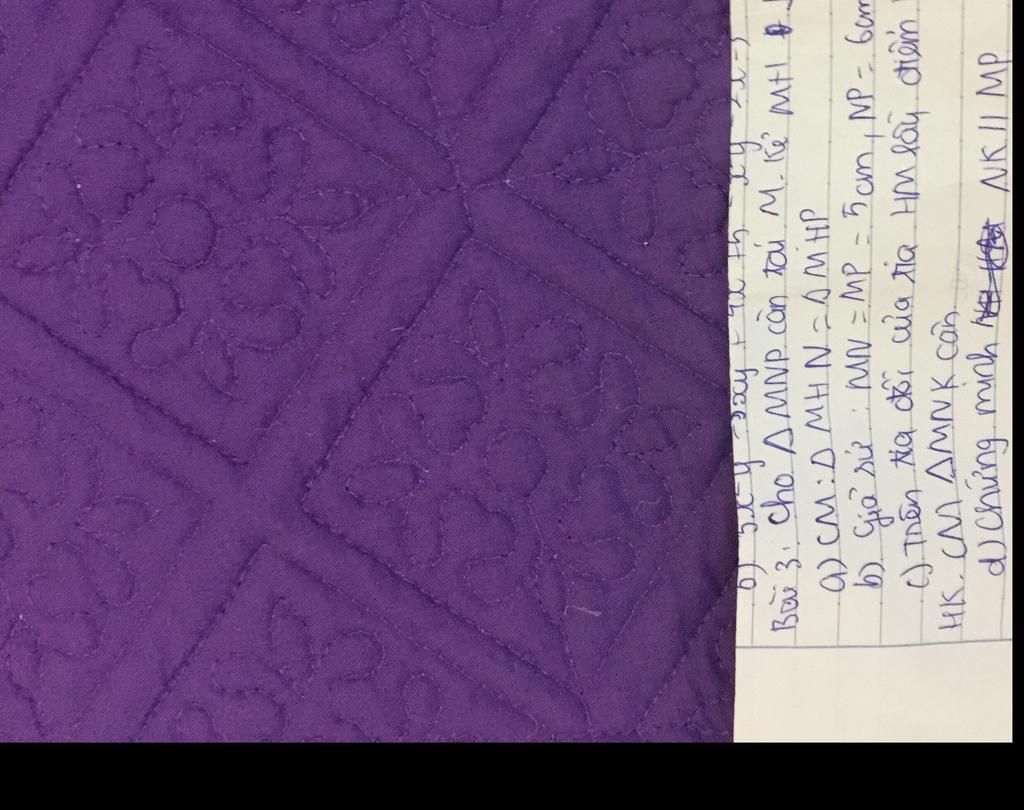 b) 5x-y
Bài 3: Cho ΔMNP cân tại M. Kẻ MH
a) CM: ΔMHN = ΔMHP
b) Giả sử: MN = MP = 5cm, NP = 6cm
c) Trên tia đối của tia HM lấy điểm
HK. CM ΔMNK cân
d) Chứng minh NK // MP